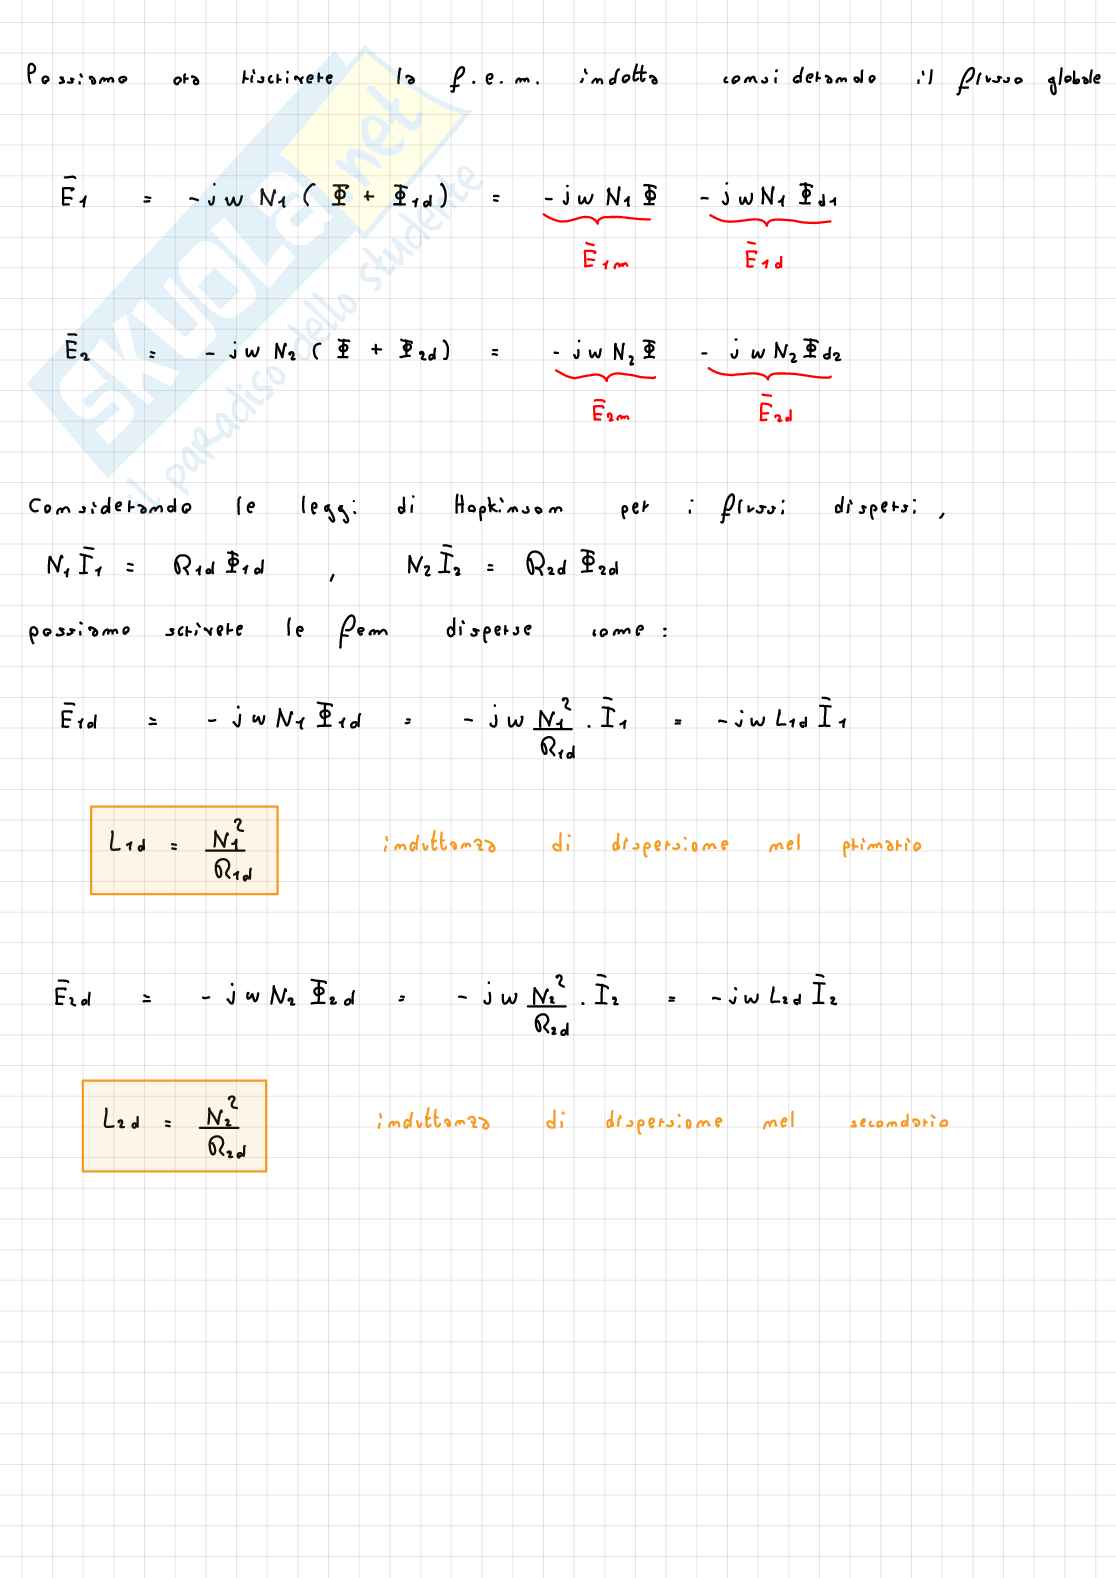 Possiamo ora riscrivere la f.e.m. indotta considerando il flusso globale
Ē1 = -jw N1 ( Φ + Φ1d ) = -jw N1 Φ - jw N1 Φd1
Ē1m Ē1d
Ē2 = -jw N2 ( Φ + Φ2d ) = -jw N2 Φ - jw N2 Φd2
Ē2m Ē2d
Considerando le leggi di Hopkinson per i flussi dispersi,
N1 Ī1 = R1d Φ1d , N2 Ī2 = R2d Φ2d
possiamo scrivere le fem disperse come :
Ē1d = -jw N1 Φ1d = -jw N1²/R1d . Ī1 = -jw L1d Ī1
L1d = N1²/R1d induttanza di dispersione nel primario
Ē2d = -jw N2 Φ2d = -jw N2²/R2d . Ī2 = -jw L2d Ī2
L2d = N2²/R2d induttanza di dispersione nel secondario
SKUOLA.net
il paradiso dello studente